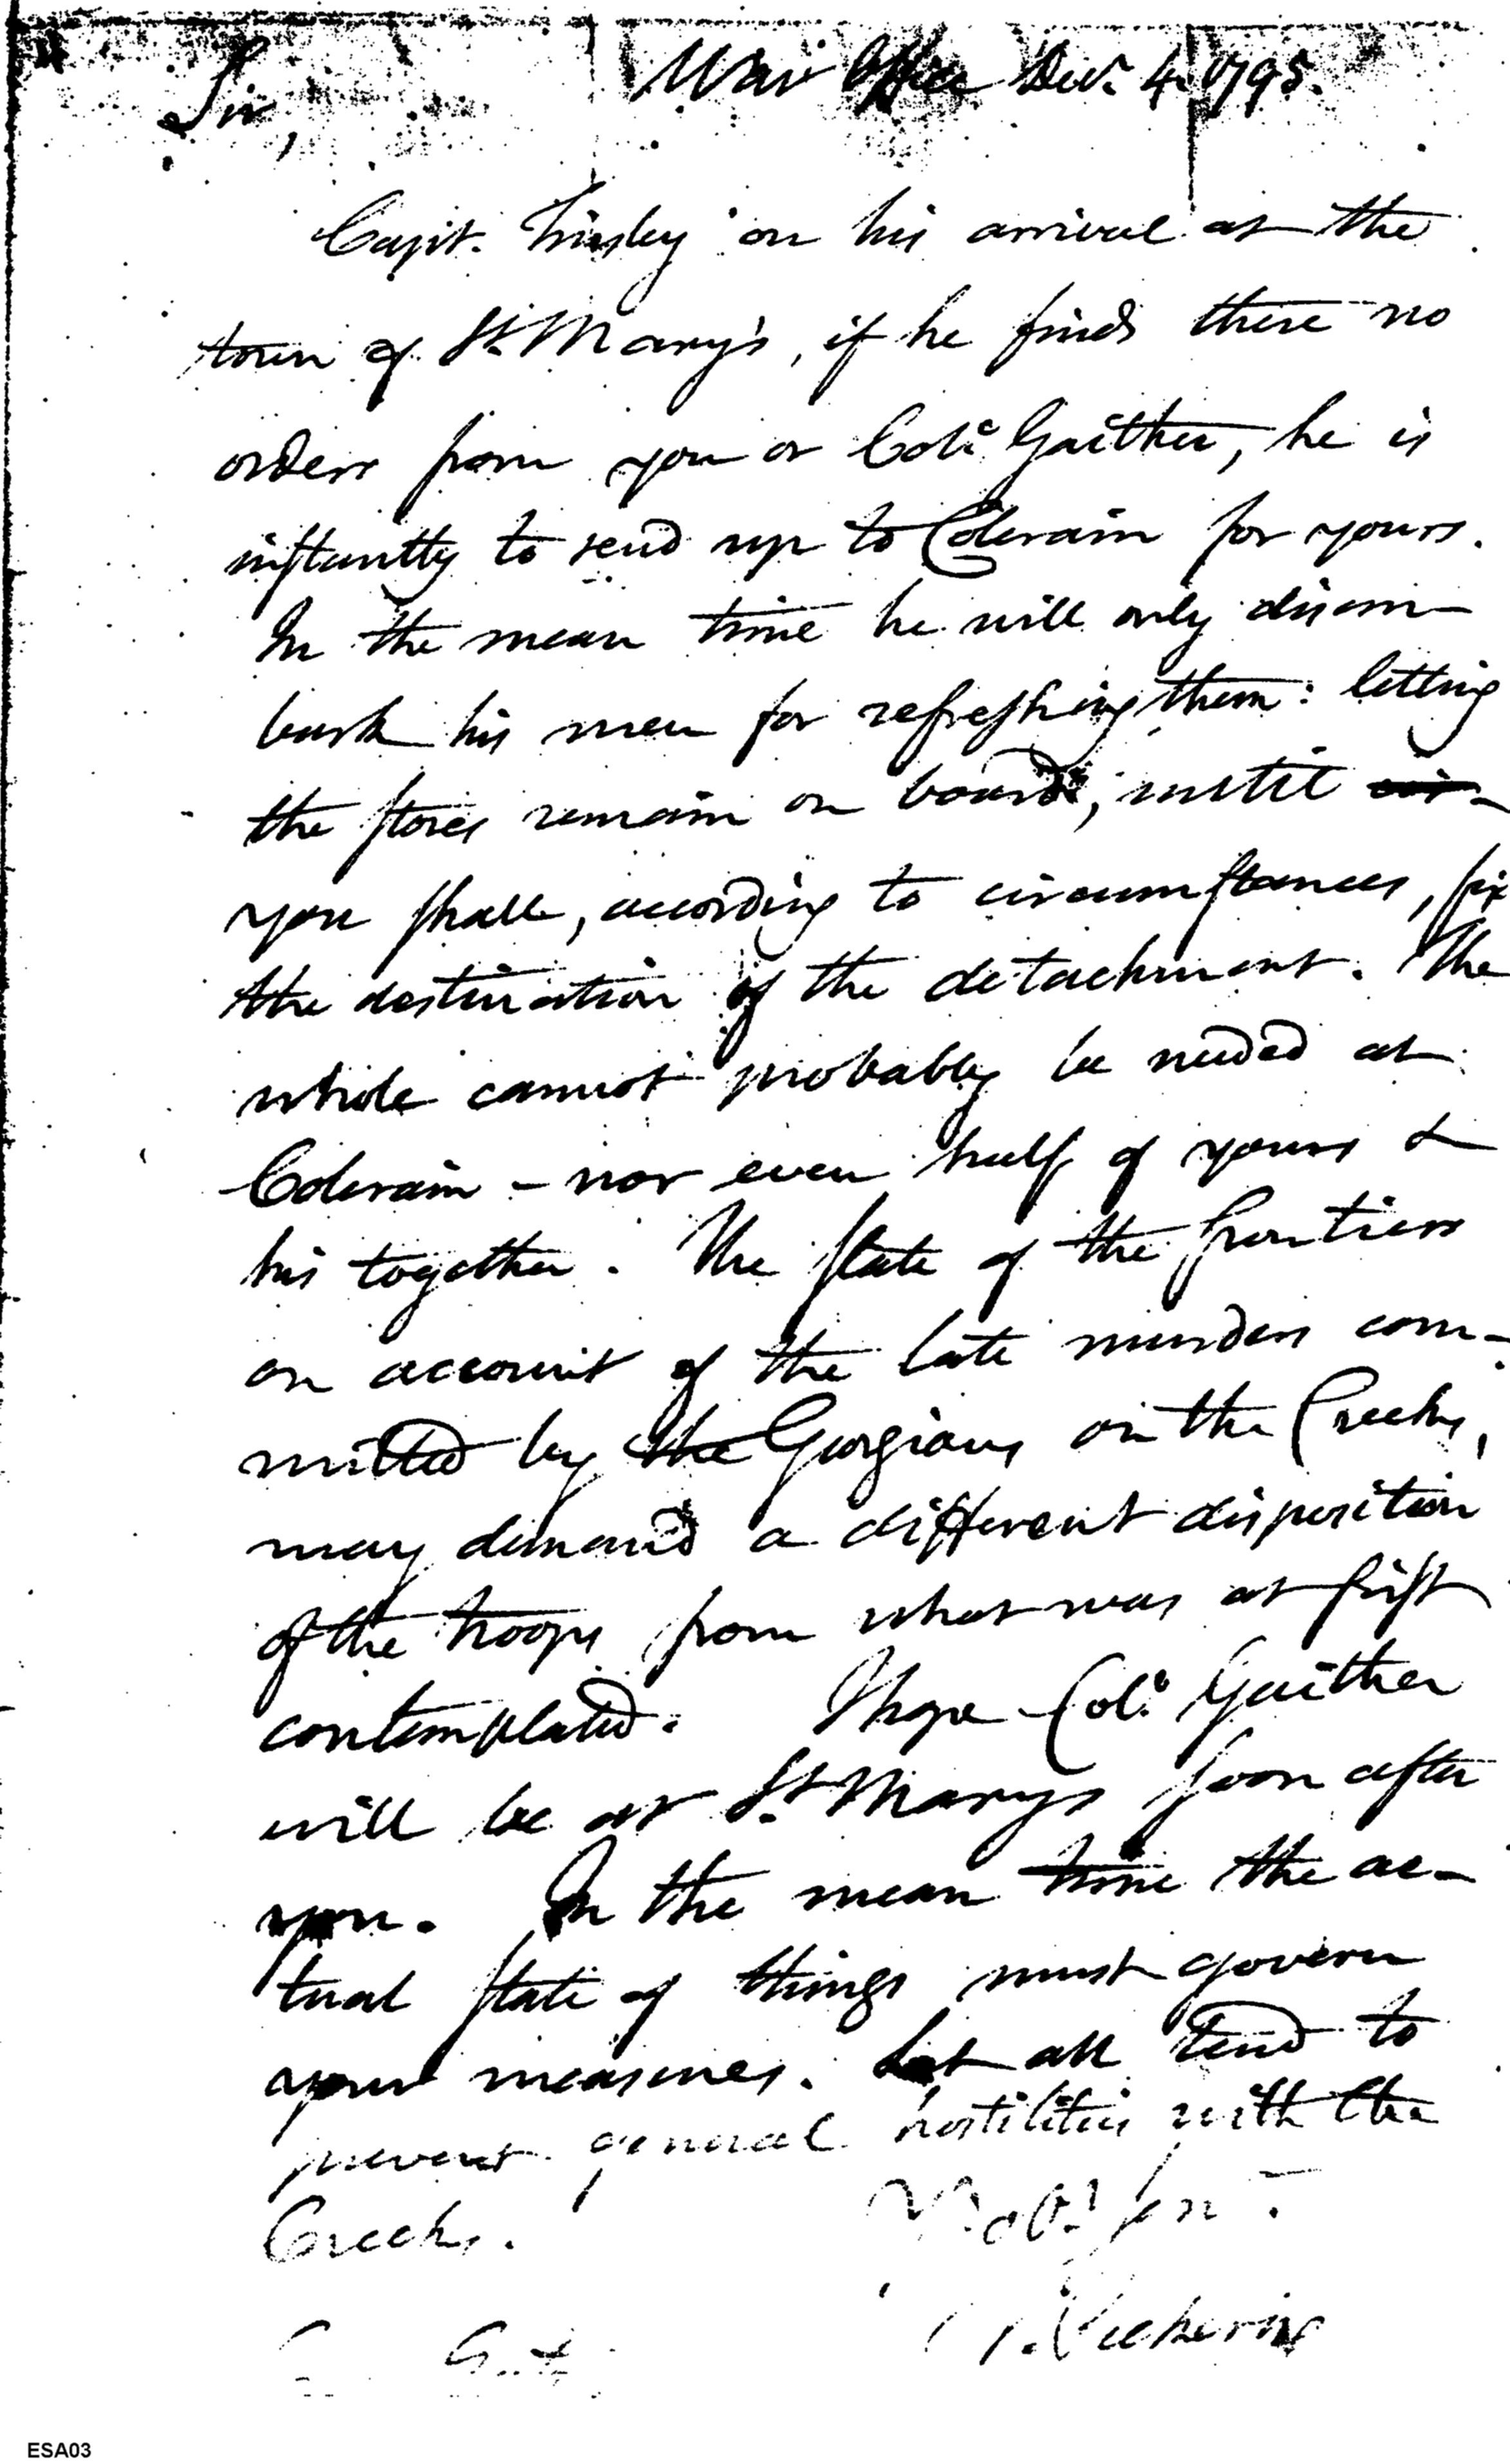 War Office Decr. 4. 1795.
Sir,
Capt. Tinsley on his arrival at the
town of St. Mary's, if he finds there no
orders from you or Colo. Gaither, he is
instantly to send up to Colerain for yours.
In the mean time he will only disem-
bark his men for refreshing them: letting
the stores remain on board, until cir-
you shall, according to circumstances, fix
the destination of the detachment. The
whole cannot probably be needed at
Colerain - nor even half of yours &
his together. The state of the frontiers
on account of the late murders com-
mitted by the Georgians on the Creeks,
may demand a different disposition
of the troops from what was at first
contemplated. I hope Colo. Gaither
will be at St. Marys soon after
you. In the mean time the ac-
tual state of things must govern
your measures. Let all tend to
prevent general hostilities with the
Creeks.
T. Pickering
ESA03